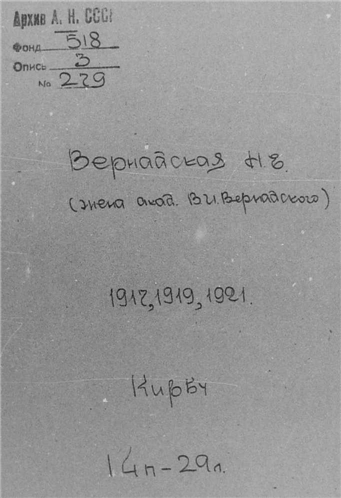 Архив А. Н. СССР
Фонд 518
Опись 3
No 229
Вернадская Н.Е.
(жена акад. В.И. Вернадского)
1917, 1919, 1921.
Кирбу
14п-29л.